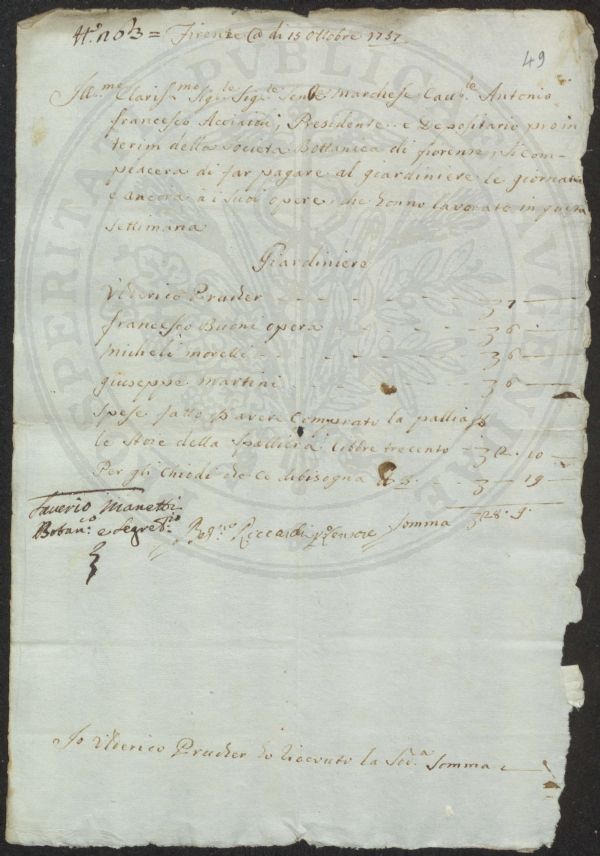 N.º 103 = Firenze @ di 15 Ottobre 1757
49
Ill.mo Clariss.mo Sig.re Sig.re Marchese Cav.re Antonio
Francesco Acciaioli, Presidente e Depositario pro in
terim della Società Bottanica di fiorenze si com=
piacerà di far pagare al giardiniere le giornate
e ancora a i suoi opere che honno lavorato in questa
settimana
Giardiniere
Vlderico Prucher - - - - - - 7 —
francesco Buoni opera - - - - 6 —
Micheli morelli - - - - - 6 —
giuseppe martini - - - - 6 —
Spese fatto p avere Comprato la pallia p
le Store della Spalliera libbre trecento - 2. 10
Per gli Chiodi de ce dibisogna - 19 —
Saverio Manetti
Botan.co e Segret.rio
Riccardi Censore
Somma 28. 9.
Io Vlderico Prucher ho ricevuto la Sud.a Somma